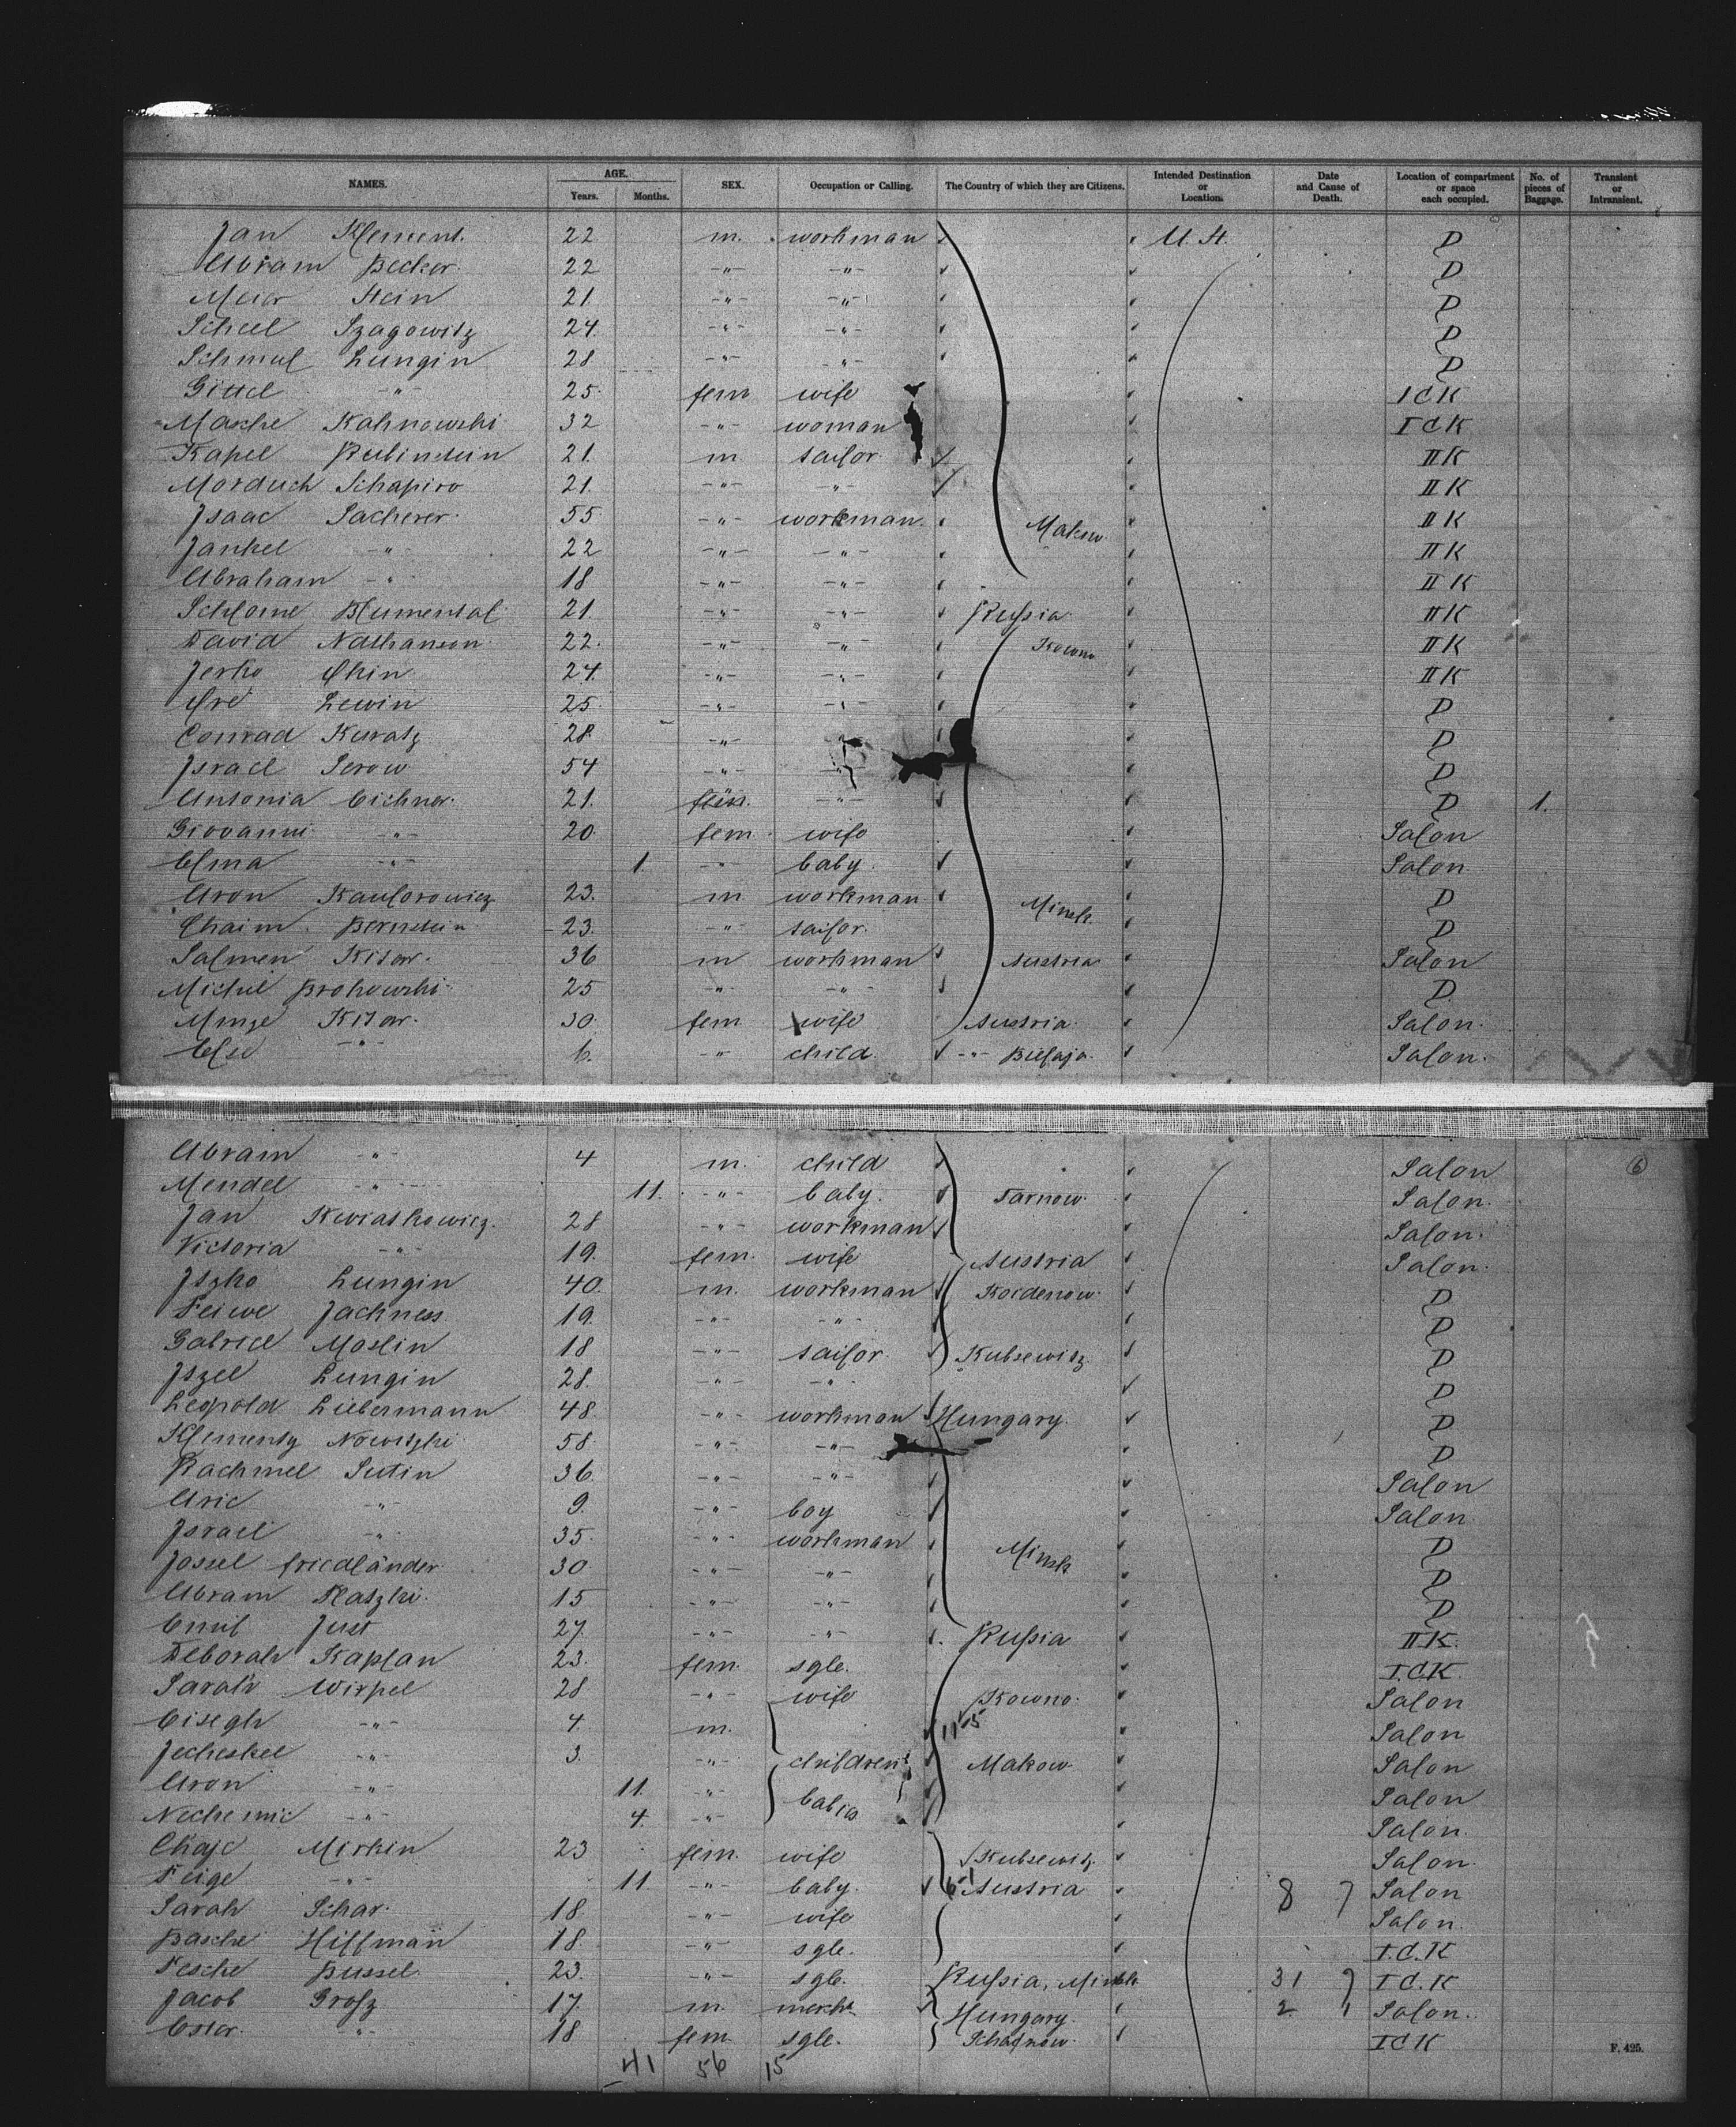 NAMES. AGE. Years. Months. SEX. Occupation or Calling. The Country of which they are Citizens. Intended Destination or Location. Date and Cause of Death. Location of compartment or space each occupied. No. of pieces of Baggage. Transient or Intransient.
Jan Klement. 22 m. workman U. St. D
Abram Becker. 22 -"- -"- D
Meier Stein 21. -"- -"- D
Scheel Szagowitz 24. -"- -"- D
Schmul Lungin 28. -"- -"- D
Gittel -"- 25. fem wife I C K
Masche Kahnowski 32 -"- woman I C K
Kapel Rubinstein 21. m tailor II K
Morduch Schapiro 21. -"- -"- II K
Isaac Sacherer. 55 -"- workman Makow. II K
Jankel -"- 22 -"- -"- II K
Abraham -"- 18 -"- -"- II K
Schlome Blumental 21. -"- -"- Rußia II K
David Nathanson 22. -"- -"- Kowno II K
Jerko Chin 24. -"- -"- II K
Ore Lewin 25. -"- -"- D
Conrad Kuratz 28. -"- -"- D
Israel Serow 54 -"- -"- D
Antonia Eichner. 21. -"- D 1.
Giovanni -"- 20. fem. wife Salon
Elma -"- 1. -"- baby. Salon
Aron Kantorowicz 23. m workman Minsk D
Chaim Bernstein 23. -"- tailor. D
Salmen Kisar. 36 m workman Austria Salon
Michel Brohowski 25 -"- -"- D
Minze Kisar. 30. fem wife Austria. Salon.
Else -"- 6. -"- child. -"- Bielaja. Salon.
Abram -"- 4 m. child Salon
Mendel -"- 11. -"- baby. Tarnow. Salon.
Jan Kwiatkowicz. 28 -"- workman Salon.
Victoria -"- 19. fem. wife Austria Salon.
Iszko Lungin 40. m. workman Koidenow. D
Feiwe Jackness 19. -"- -"- D
Gabriel Moslin 18 -"- tailor. Kubsewitz. D
Iszel Lungin 28. -"- -"- D
Leopold Liebermann 48. -"- workman Hungary. D
Klementz Nowitzki 58. -"- -"- D
Rachmel Sutin 36. -"- -"- Salon
Aric -"- 9. -"- boy Salon
Israel -"- 35. -"- workman Minsk D
Jossel Friedländer 30. -"- -"- D
Abram Platzki. 15 -"- -"- D
Emil Just 27. -"- -"- Rußia II K.
Deborah Kaplan 23. fem. sgle. I C K.
Sarah Wirpel 28 -"- wife Kowno. Salon
Eisegh -"- 4. m. 11-5 Salon
Jecheskel -"- 3. -"- children Makow. Salon
Aron -"- 11. -"- babies Salon
Nechemie -"- 4. -"- Salon.
Chaje Mirkin 23 fem. wife Kubsewitz. Salon.
Feige -"- 11. -"- baby. Austria 8 7 Salon
Sarah Schar. 18. -"- wife Salon.
Basche Hiffman 18. -"- sgle. I. C. K
Tesche Bussel. 23. -"- sgle. Rußia, Minsk 31 7 I C. K
Jacob Groß 17. m. merch. Hungary. 2 1 Salon.
Ester. -"- 18 fem sgle. I C K
41 56 15
F. 425.
6